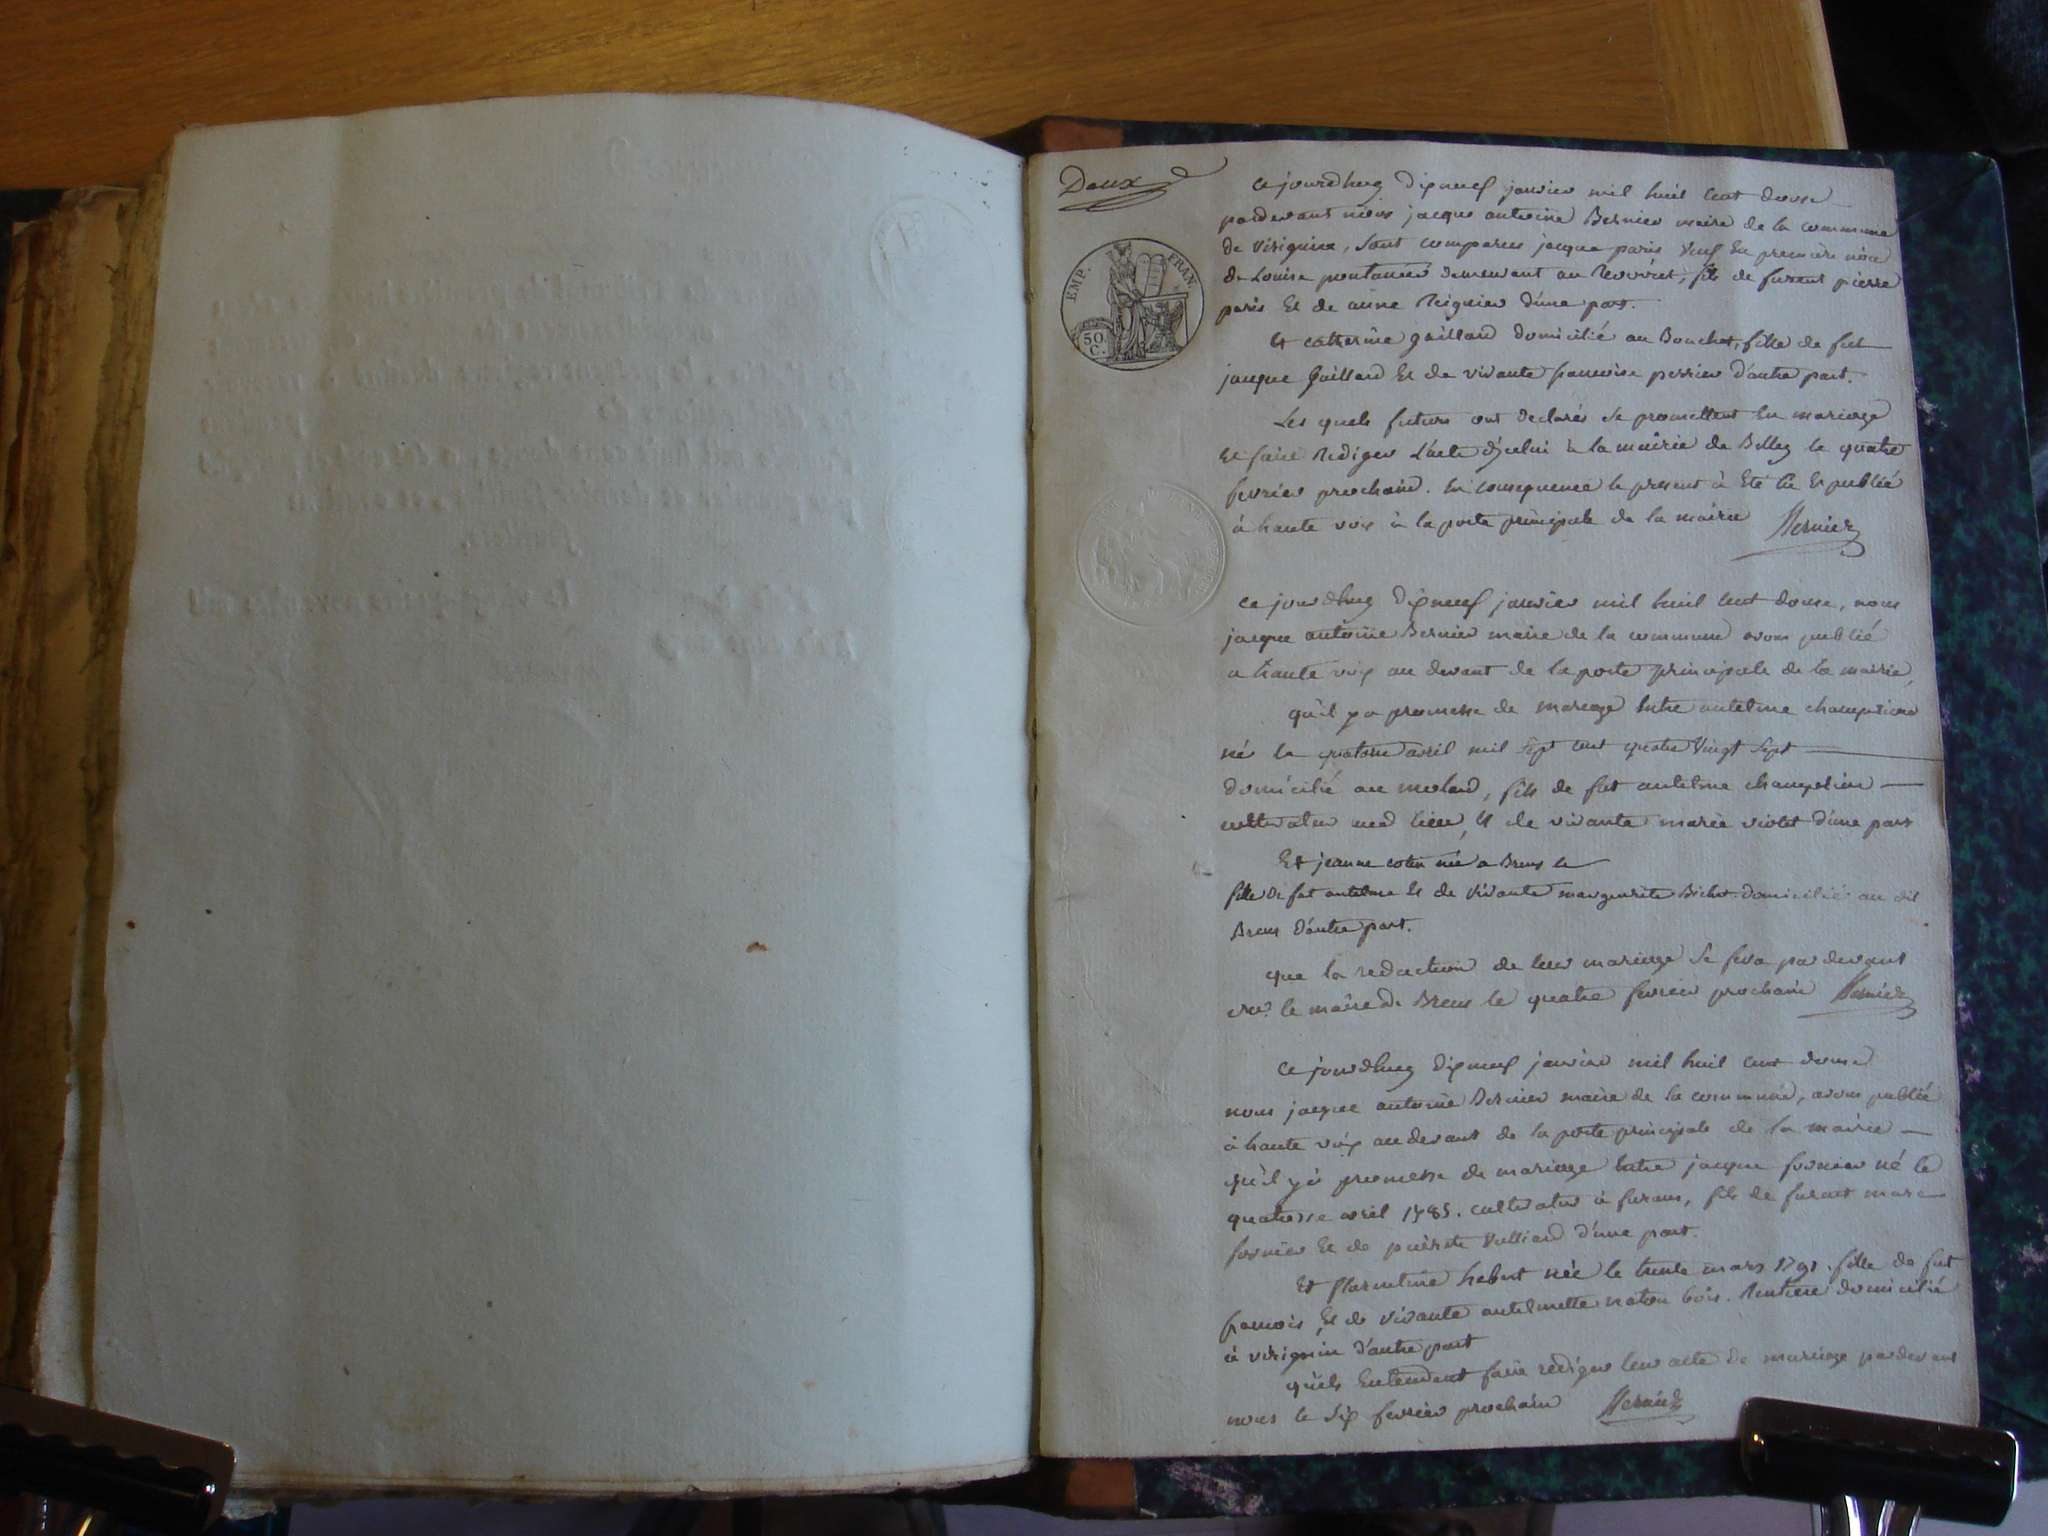 Deux
EMP. FRAN.
50. C.
ce jourdhuy dixneuf janvier mil huit cent douse
pardevant nous jacque antoine Bernier maire de la commune
de virignin, sont comparus jacque paris veuf en première nôce
de Louise demeurant au fils de furent pierre
paris Et de anne d'une part.
Et catherine gaillard domicilié au Bouchet, fille de fut
jacque gaillard Et de vivante francoise perrier d'autre part.
Les quels futurs ont declarés se promettent En mariage
Et faire Rediger L'acte d'icelui à la mairie de Belley le quatre
fevrier prochain. En consequence le present à Eté lu Et publié
à haute voix à la porte principale de la mairie Bernier
ce jourdhuy dixneuf janvier mil huit cent douse, nous
jacque antoine Bernier maire de la commune avons publié
a haute voix au devant de la porte principale de la mairie,
qu'il ya promesse de mariage Entre antelme
né le quatorse avril mil sept cent quatre vingt sept
domicilié au molard, fils de fut antelme
cultivateur aud lieu, Et de vivante marie violet d'une part
Et jeanne née a Brens le
fille de fut antelme Et de vivante marguerite domicilié au dit
Brens d'autre part.
que la redaction de leur mariage se fera pardevant
mr. le maire de Brens le quatre fevrier prochain Bernier
ce jourdhuy dixneuf janvier mil huit cent douse
nous jacque antoine Bernier maire de la commune, avons publié
à haute voix au devant de la porte principale de la mairie
qu'il yà promesse de mariage Entre jacque fornier né le
quatorse avril 1785. cultivateur à furans, fils de furent marc
fornier Et de d'une part.
Et florentine hebert née le trente mars 1791. fille de fut
francois, Et de vivante antelmette bois. Rentiere domicilié
à virignin d'autre part
qu'ils Entendent faire rediger leur acte de mariage pardevant
nous le six fevrier prochain Bernier